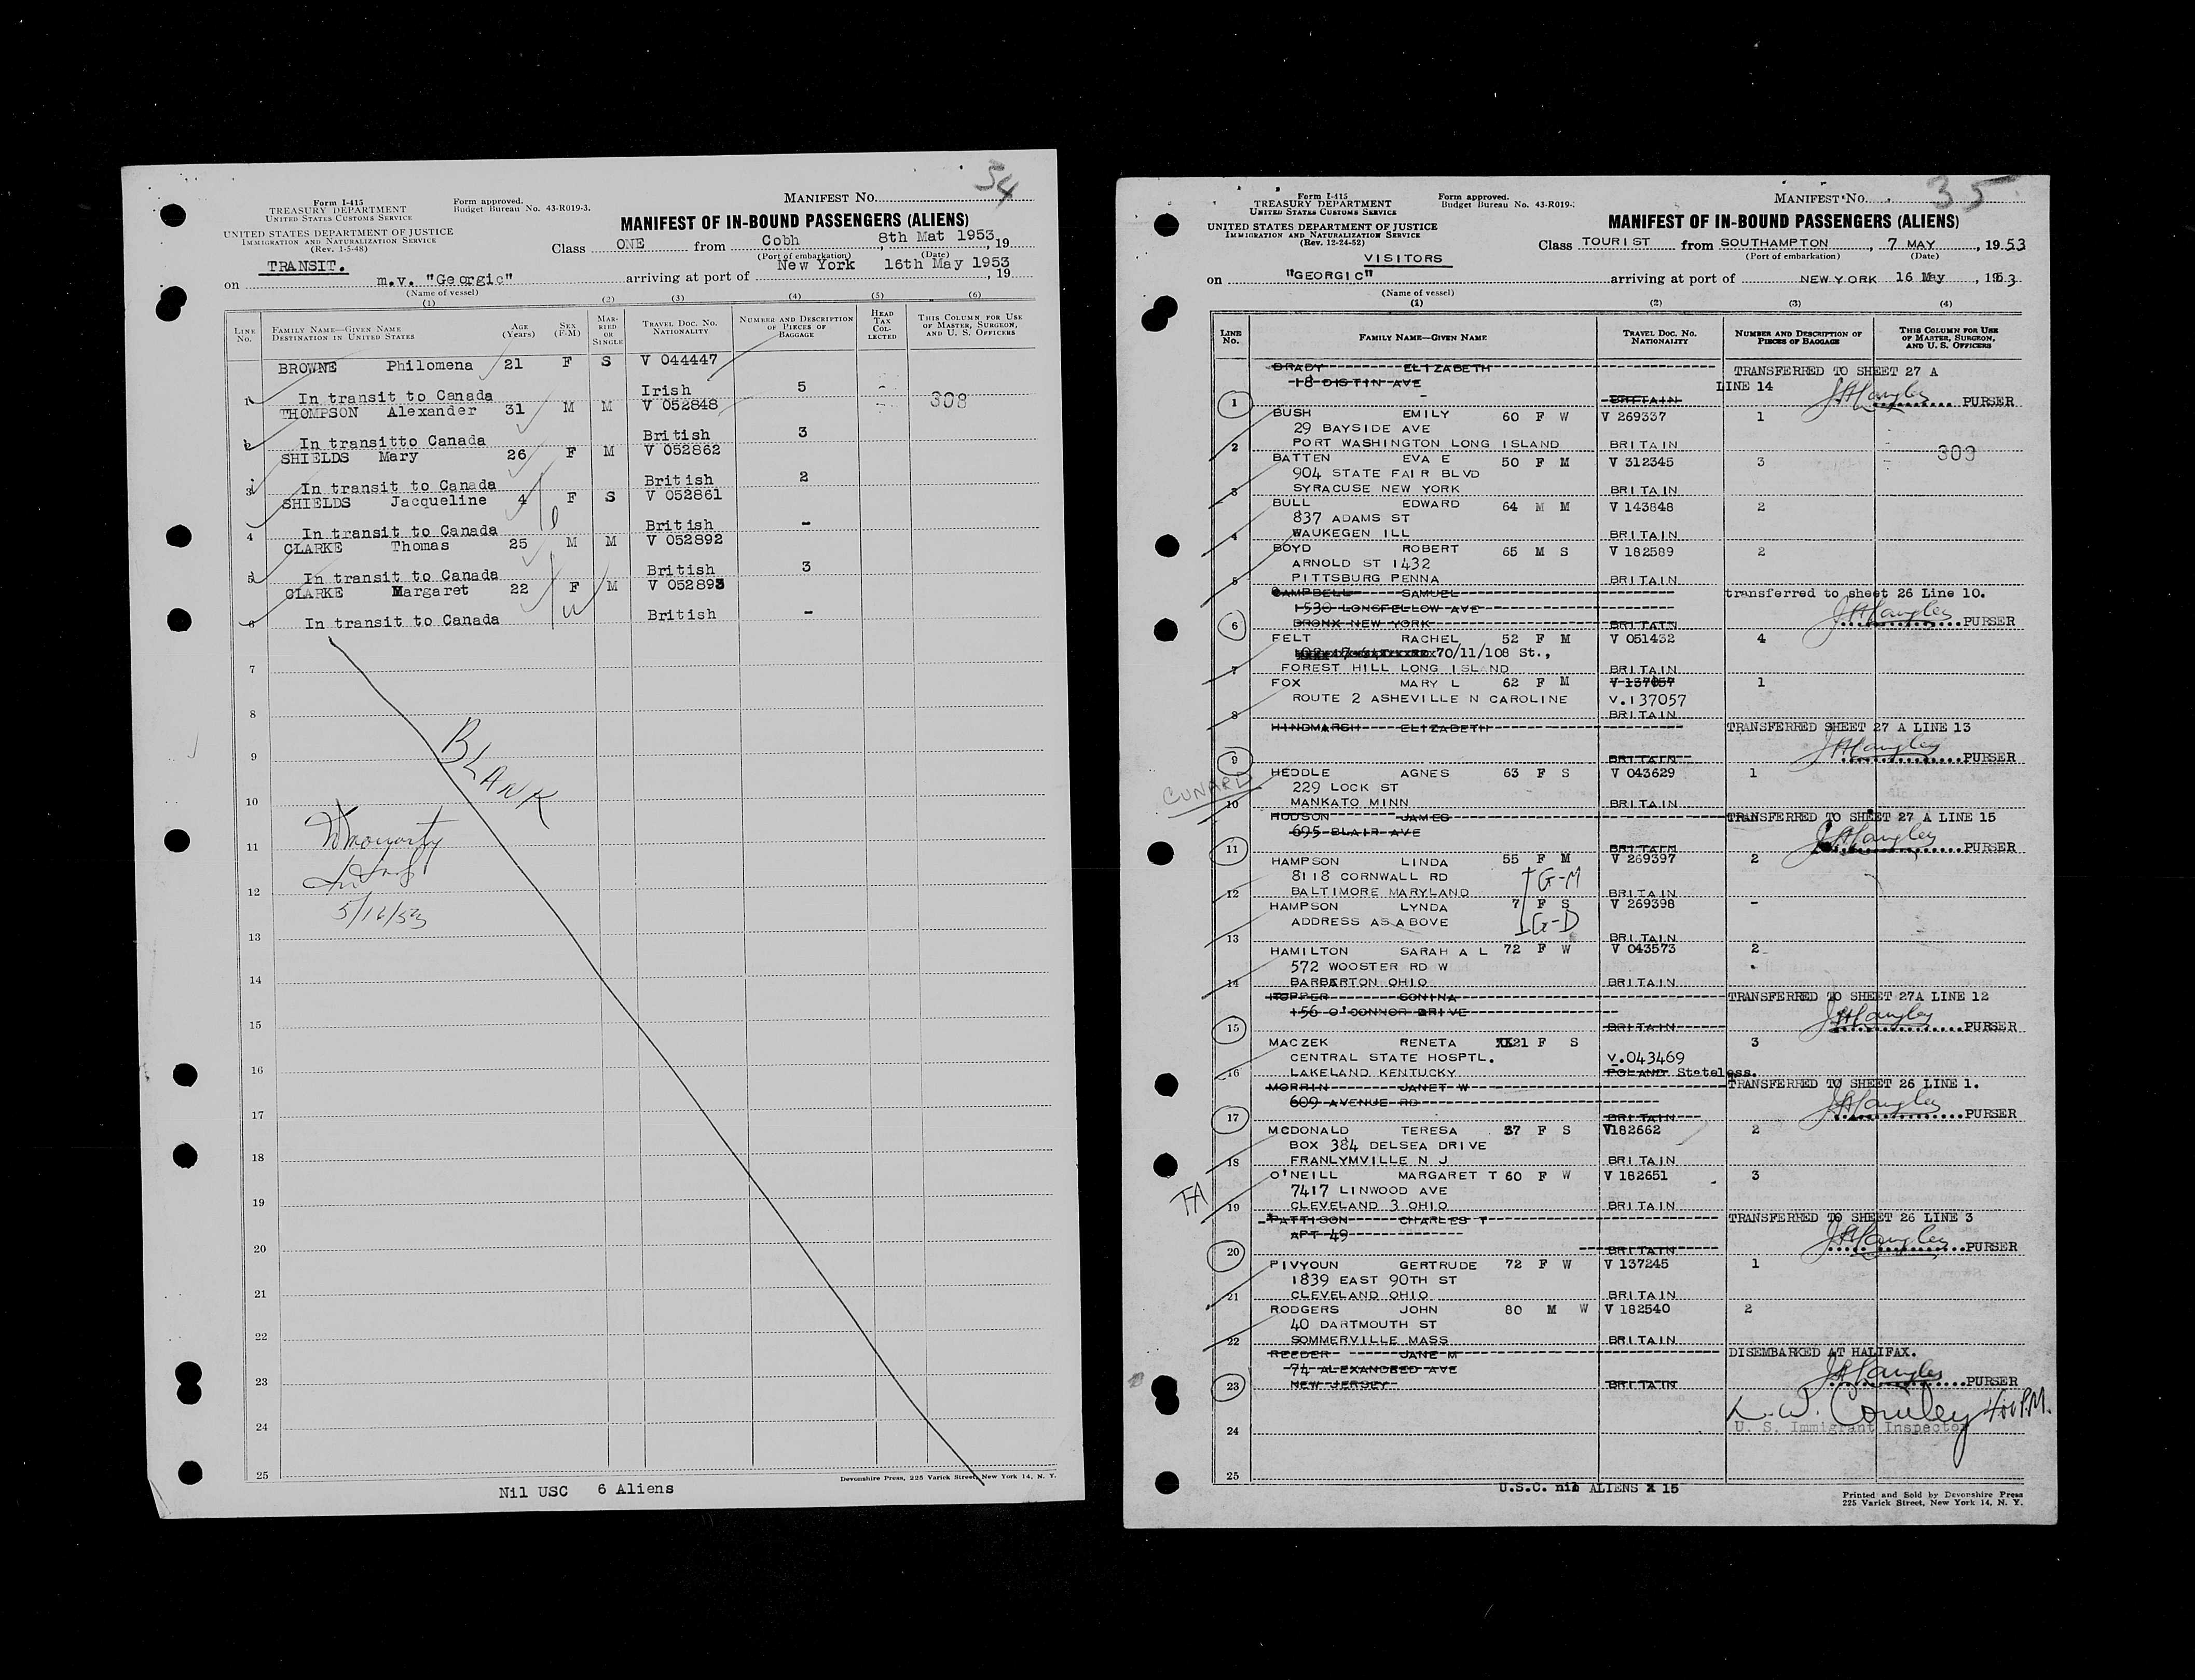 54
Form I-415
TREASURY DEPARTMENT
UNITED STATES CUSTOMS SERVICE
Form approved.
Budget Bureau No. 43-R019-3.
MANIFEST No.
UNITED STATES DEPARTMENT OF JUSTICE
IMMIGRATION AND NATURALIZATION SERVICE
(Rev. 1-5-48)
MANIFEST OF IN-BOUND PASSENGERS (ALIENS)
Class ONE from Cobh 8th Mat 1953, 19
(Port of embarkation) (Date)
TRANSIT.
on m.v. "Georgic" arriving at port of New York 16th May 1953, 19
(Name of vessel)
(1) (2) (3) (4) (5) (6)
LINE No. FAMILY NAME—GIVEN NAME DESTINATION IN UNITED STATES AGE (Years) SEX (F-M) MARRIED OR SINGLE TRAVEL DOC. No. NATIONALITY NUMBER AND DESCRIPTION OF PIECES OF BAGGAGE HEAD TAX COLLECTED THIS COLUMN FOR USE OF MASTER, SURGEON, AND U. S. OFFICERS
BROWNE Philomena 21 F S V 044447
1 In transit to Canada Irish 5 308
THOMPSON Alexander 31 M M V 052848
2 In transitto Canada British 3
SHIELDS Mary 26 F M V 052862
3 In transit to Canada British 2
SHIELDS Jacqueline 4 F S V 052861
4 In transit to Canada British -
CLARKE Thomas 25 M M V 052892
5 In transit to Canada British 3
CLARKE Margaret 22 F M V 052893
6 In transit to Canada British -
7
8
BLANK
9
10
11
12
5/16/53
13
14
15
16
17
18
19
20
21
22
23
24
25
Devonshire Press, 225 Varick Street, New York 14, N. Y.
Nil USC 6 Aliens
35
Form I-415
TREASURY DEPARTMENT
UNITED STATES CUSTOMS SERVICE
Form approved.
Budget Bureau No. 43-R019-
MANIFEST No.
UNITED STATES DEPARTMENT OF JUSTICE
IMMIGRATION AND NATURALIZATION SERVICE
(Rev. 12-24-52)
MANIFEST OF IN-BOUND PASSENGERS (ALIENS)
Class TOURIST from SOUTHAMPTON, 7 MAY, 1953
(Port of embarkation) (Date)
VISITORS
on "GEORGIC" arriving at port of NEW YORK 16 May, 1953
(Name of vessel)
(1) (2) (3) (4)
LINE No. FAMILY NAME—GIVEN NAME TRAVEL DOC. No. NATIONALITY NUMBER AND DESCRIPTION OF PIECES OF BAGGAGE THIS COLUMN FOR USE OF MASTER, SURGEON, AND U. S. OFFICERS
BRADY ELIZABETH TRANSFERRED TO SHEET 27 A
18 DISTIN AVE LINE 14
1 BRITAIN JH Langley PURSER
BUSH EMILY 60 F W V 269337 1
29 BAYSIDE AVE
2 PORT WASHINGTON LONG ISLAND BRITAIN 309
BATTEN EVA E 50 F M V 312345 3
904 STATE FAIR BLVD
3 SYRACUSE NEW YORK BRITAIN
BULL EDWARD 64 M M V 143848 2
837 ADAMS ST
4 WAUKEGEN ILL BRITAIN
BOYD ROBERT 65 M S V 182589 2
ARNOLD ST 1432
5 PITTSBURG PENNA BRITAIN
CAMPBELL SAMUEL transferred to sheet 26 Line 10.
1530 LONGFELLOW AVE
6 BRONX NEW YORK BRITAIN JH Langley PURSER
FELT RACHEL 52 F M V 051432 4
70/11/108 St.,
7 FOREST HILL LONG ISLAND BRITAIN
FOX MARY L 62 F M V 137057 1
ROUTE 2 ASHEVILLE N CAROLINE V.137057
8 BRITAIN
HINDMARSH ELIZABETH TRANSFERRED SHEET 27 A LINE 13
9 BRITAIN JH Langley PURSER
HEDDLE AGNES 63 F S V 043629 1
CUNARD 229 LOCK ST
10 MANKATO MINN BRITAIN
HUDSON JAMES TRANSFERRED TO SHEET 27 A LINE 15
695 BLAIR AVE
11 BRITAIN JH Langley PURSER
HAMPSON LINDA 55 F M V 269397 2
8118 CORNWALL RD G-M
12 BALTIMORE MARYLAND BRITAIN
HAMPSON LYNDA 7 F S V 269398 -
ADDRESS AS ABOVE G-D
13 BRITAIN
HAMILTON SARAH A L 72 F W V 043573 2
572 WOOSTER RD W
14 BARBERTON OHIO BRITAIN
HOPPER SONINA TRANSFERRED TO SHEET 27A LINE 12
156 O'CONNOR DRIVE
15 BRITAIN JH Langley PURSER
MACZEK RENETA 21 F S 3
CENTRAL STATE HOSPTL. V.043469
16 LAKELAND KENTUCKY POLAND Stateless.
MORRIN JANET W TRANSFERRED TO SHEET 26 LINE 1.
609 AVENUE RD
17 BRITAIN JH Langley PURSER
MCDONALD TERESA 37 F S V182662 2
BOX 384 DELSEA DRIVE
18 FRANLYMVILLE N J BRITAIN
O'NEILL MARGARET T 60 F W V 182651 3
7417 LINWOOD AVE
FA 19 CLEVELAND 3 OHIO BRITAIN
PATTISON CHARLES T TRANSFERRED TO SHEET 26 LINE 3
APT 49
20 BRITAIN JH Langley PURSER
PIVYOUN GERTRUDE 72 F W V 137245 1
1839 EAST 90TH ST
21 CLEVELAND OHIO BRITAIN
RODGERS JOHN 80 M W V 182540 2
40 DARTMOUTH ST
22 SOMMERVILLE MASS BRITAIN
REEDER JANE M DISEMBARKED AT HALIFAX.
74 ALEXANDRED AVE
23 NEW JERSEY BRITAIN JH Langley PURSER
L.W. Cowley 4:00 P.M.
24 U. S. Immigrant Inspector
25
U.S.C. nil ALIENS 15
Printed and Sold by Devonshire Press
225 Varick Street, New York 14, N. Y.